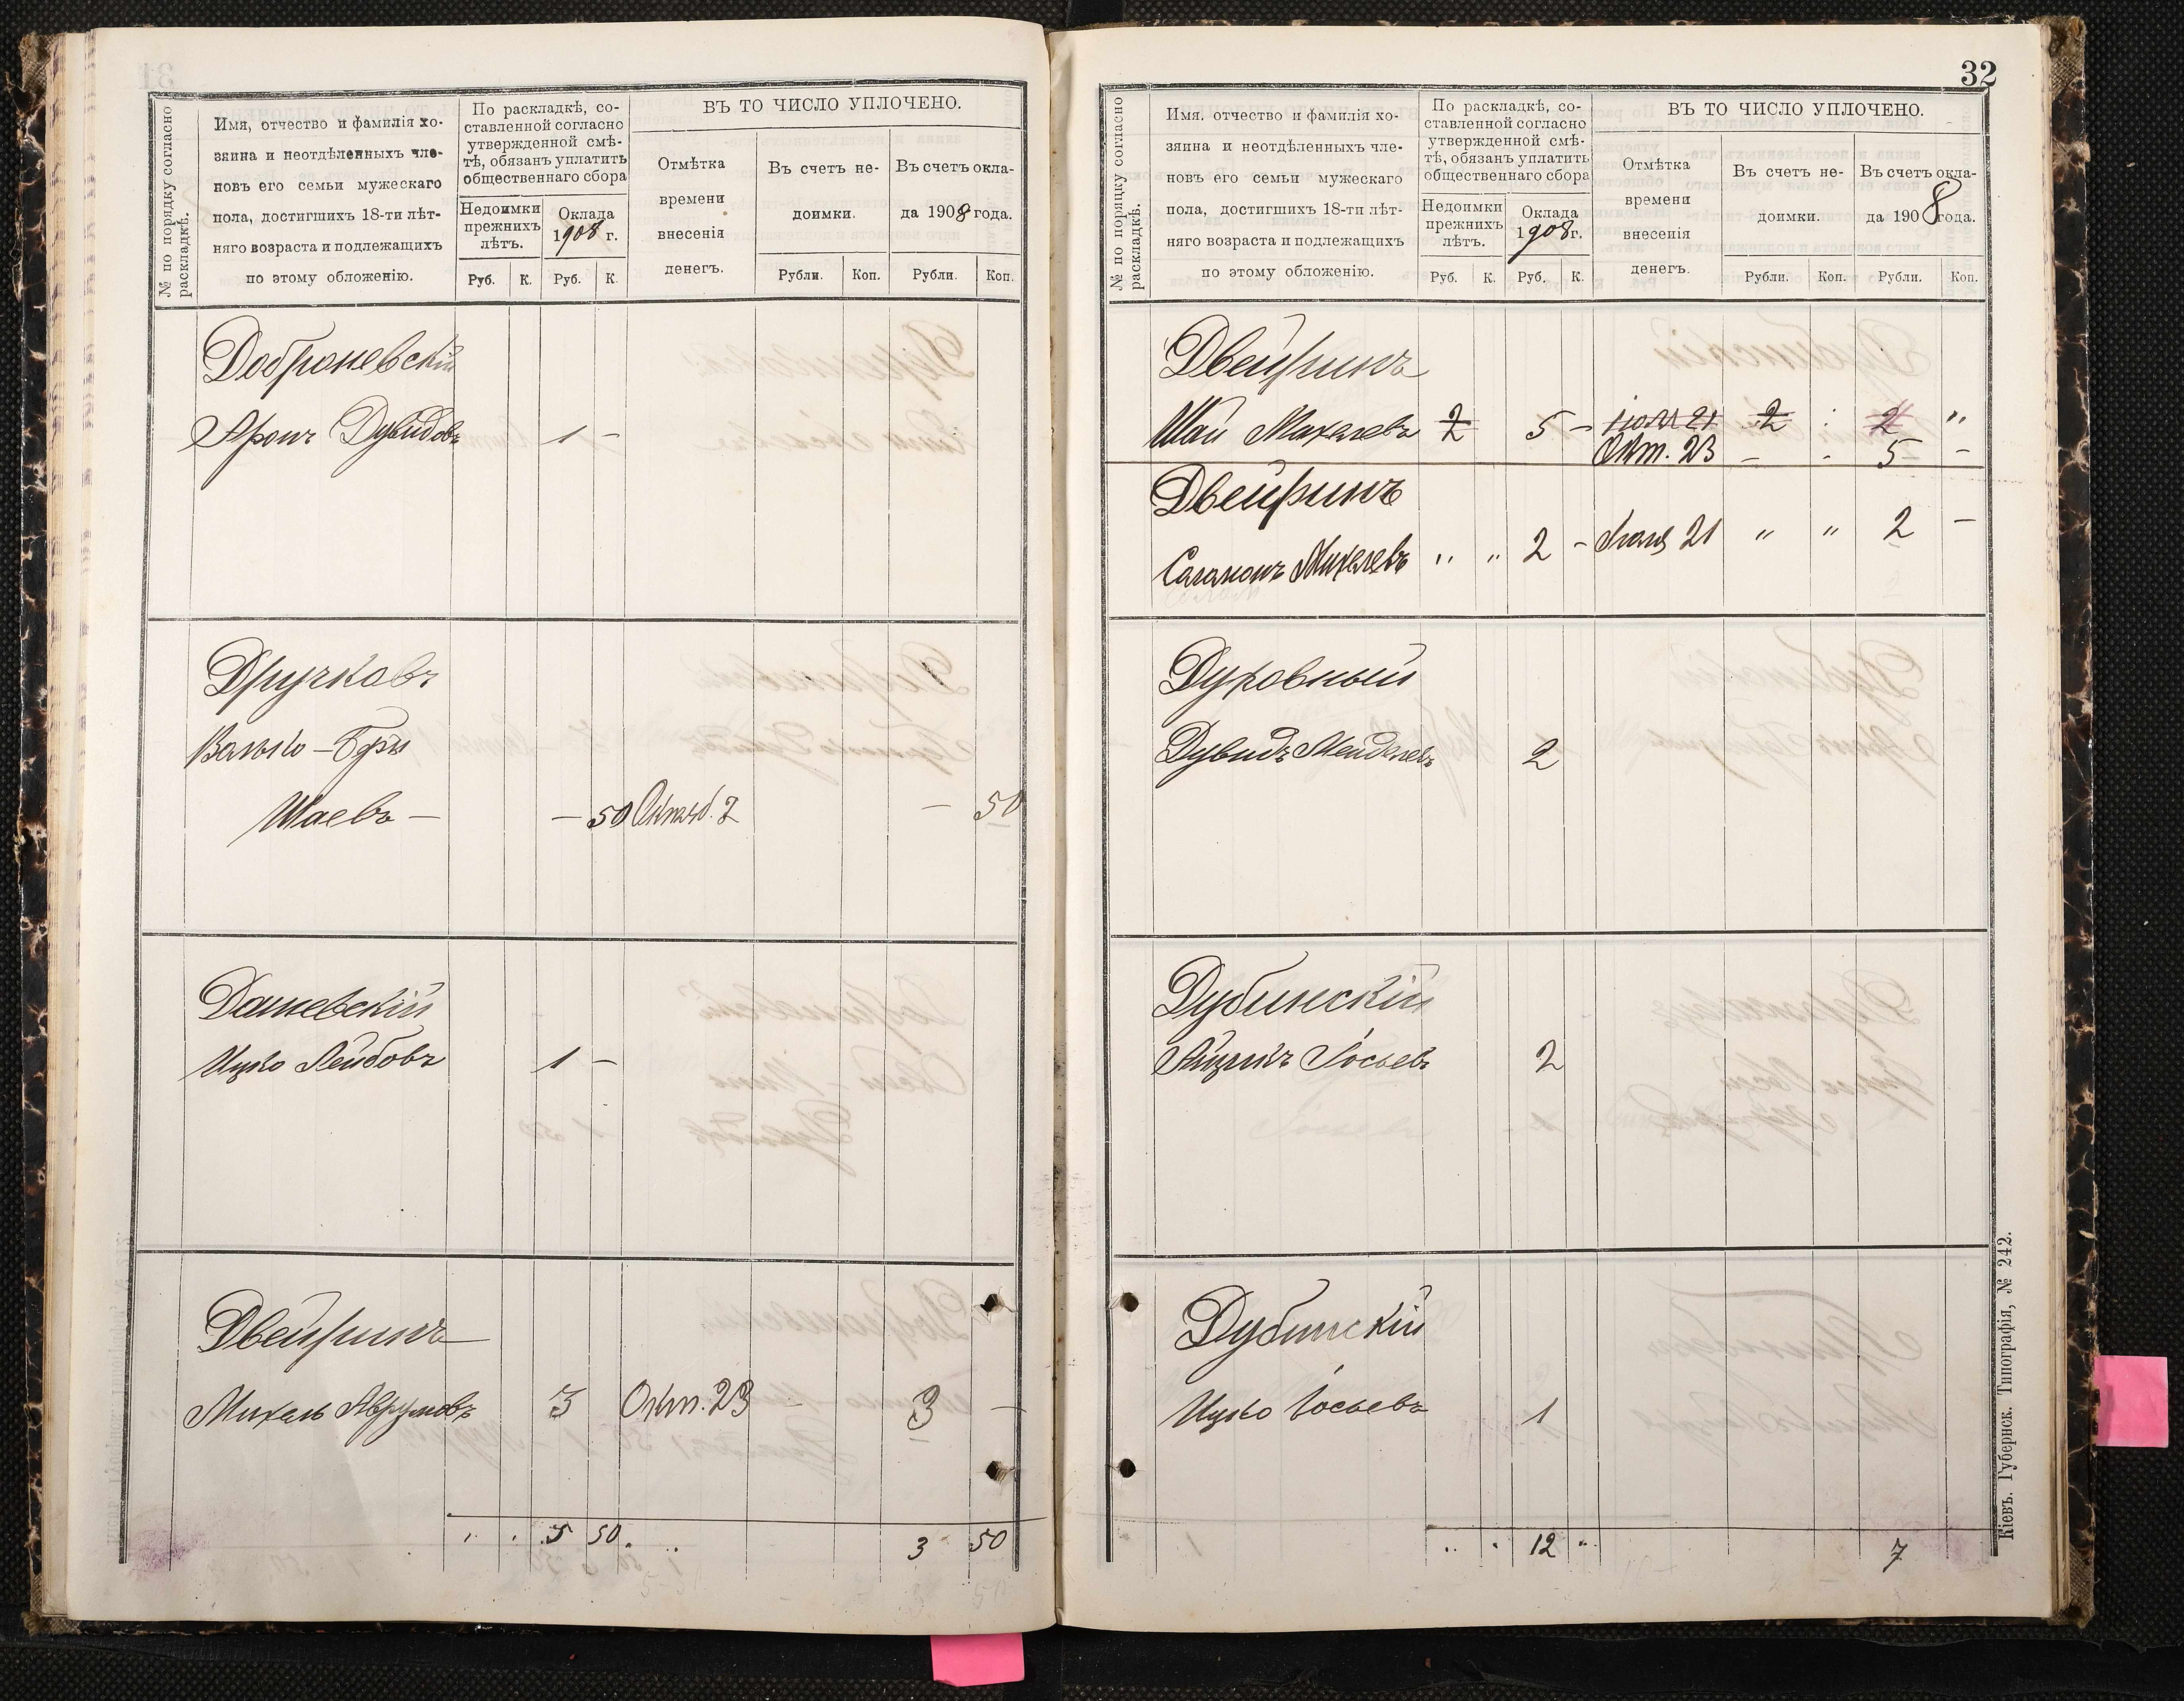 № по порядку согласно раскладкѣ.
Имя, отчество и фамилія хо-
зяина и неотдѣленныхъ чле-
новъ его семьи мужескаго
пола, достигшихъ 18-ти лѣт-
няго возраста и подлежащихъ
по этому обложенію.
По раскладкѣ, со-
ставленной согласно
утвержденной смѣ-
тѣ, обязанъ уплатить
общественнаго сбора
Недоимки
прежнихъ
лѣтъ.
Оклада
1908 г.
Руб. К. Руб. К.
ВЪ ТО ЧИСЛО УПЛОЧЕНО.
Отмѣтка
времени
внесенія
денегъ.
Въ счетъ не-
доимки.
Рубли. Коп.
Въ счетъ окла-
да 1908 года.
Рубли. Коп.
Доброневскій
Аронъ Дувидовъ 1 —
Дручковъ
Валько-Бэръ
Шаевъ — — 50 Октяб. 2 — 50
Дашевскій
Ицко Лейбовъ 1 —
Двейринъ
Михель Аврумовъ 3 Окт. 23 — 3 —
5 50 3 50
32
№ по порядку согласно раскладкѣ.
Имя, отчество и фамилія хо-
зяина и неотдѣленныхъ чле-
новъ его семьи мужескаго
пола, достигшихъ 18-ти лѣт-
няго возраста и подлежащихъ
по этому обложенію.
По раскладкѣ, со-
ставленной согласно
утвержденной смѣ-
тѣ, обязанъ уплатить
общественнаго сбора
Недоимки
прежнихъ
лѣтъ.
Оклада
1908 г.
Руб. К. Руб. К.
ВЪ ТО ЧИСЛО УПЛОЧЕНО.
Отмѣтка
времени
внесенія
денегъ.
Въ счетъ не-
доимки.
Рубли. Коп.
Въ счетъ окла-
да 1908 года.
Рубли. Коп.
Двейринъ
Шая Михелевъ 2 5 — іюля 21 2 2 "
Окт. 23 — - 5 —
Двейринъ
Саламонъ Михелевъ " " 2 — Іюля 21 " " 2 —
Духовный
Дувидъ Менделевъ 2
Дубинскій
Айзикъ Іосьевъ 2
Дубинскій
Ицко Іосьевъ 1
12 " 7
Кіевъ. Губернск. Типографія, № 242.